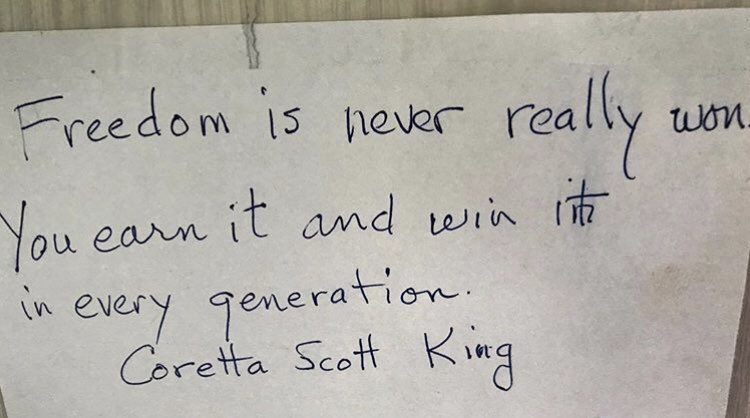 Freedom is never really won.
You earn it and win it
in every generation.
Coretta Scott King